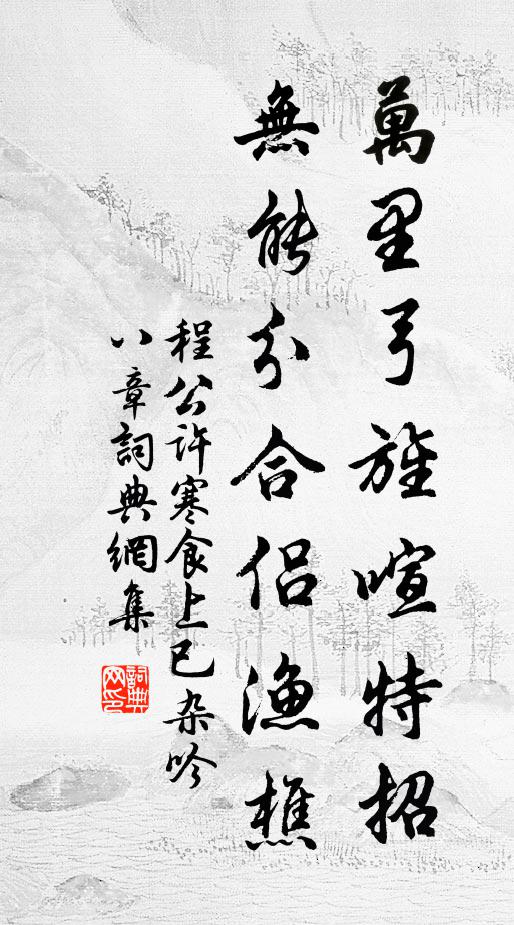 萬里弓旌喧特招
無能分合侶漁樵
程公許寒食上巳杂吟
八章詞典網集
詞典網印